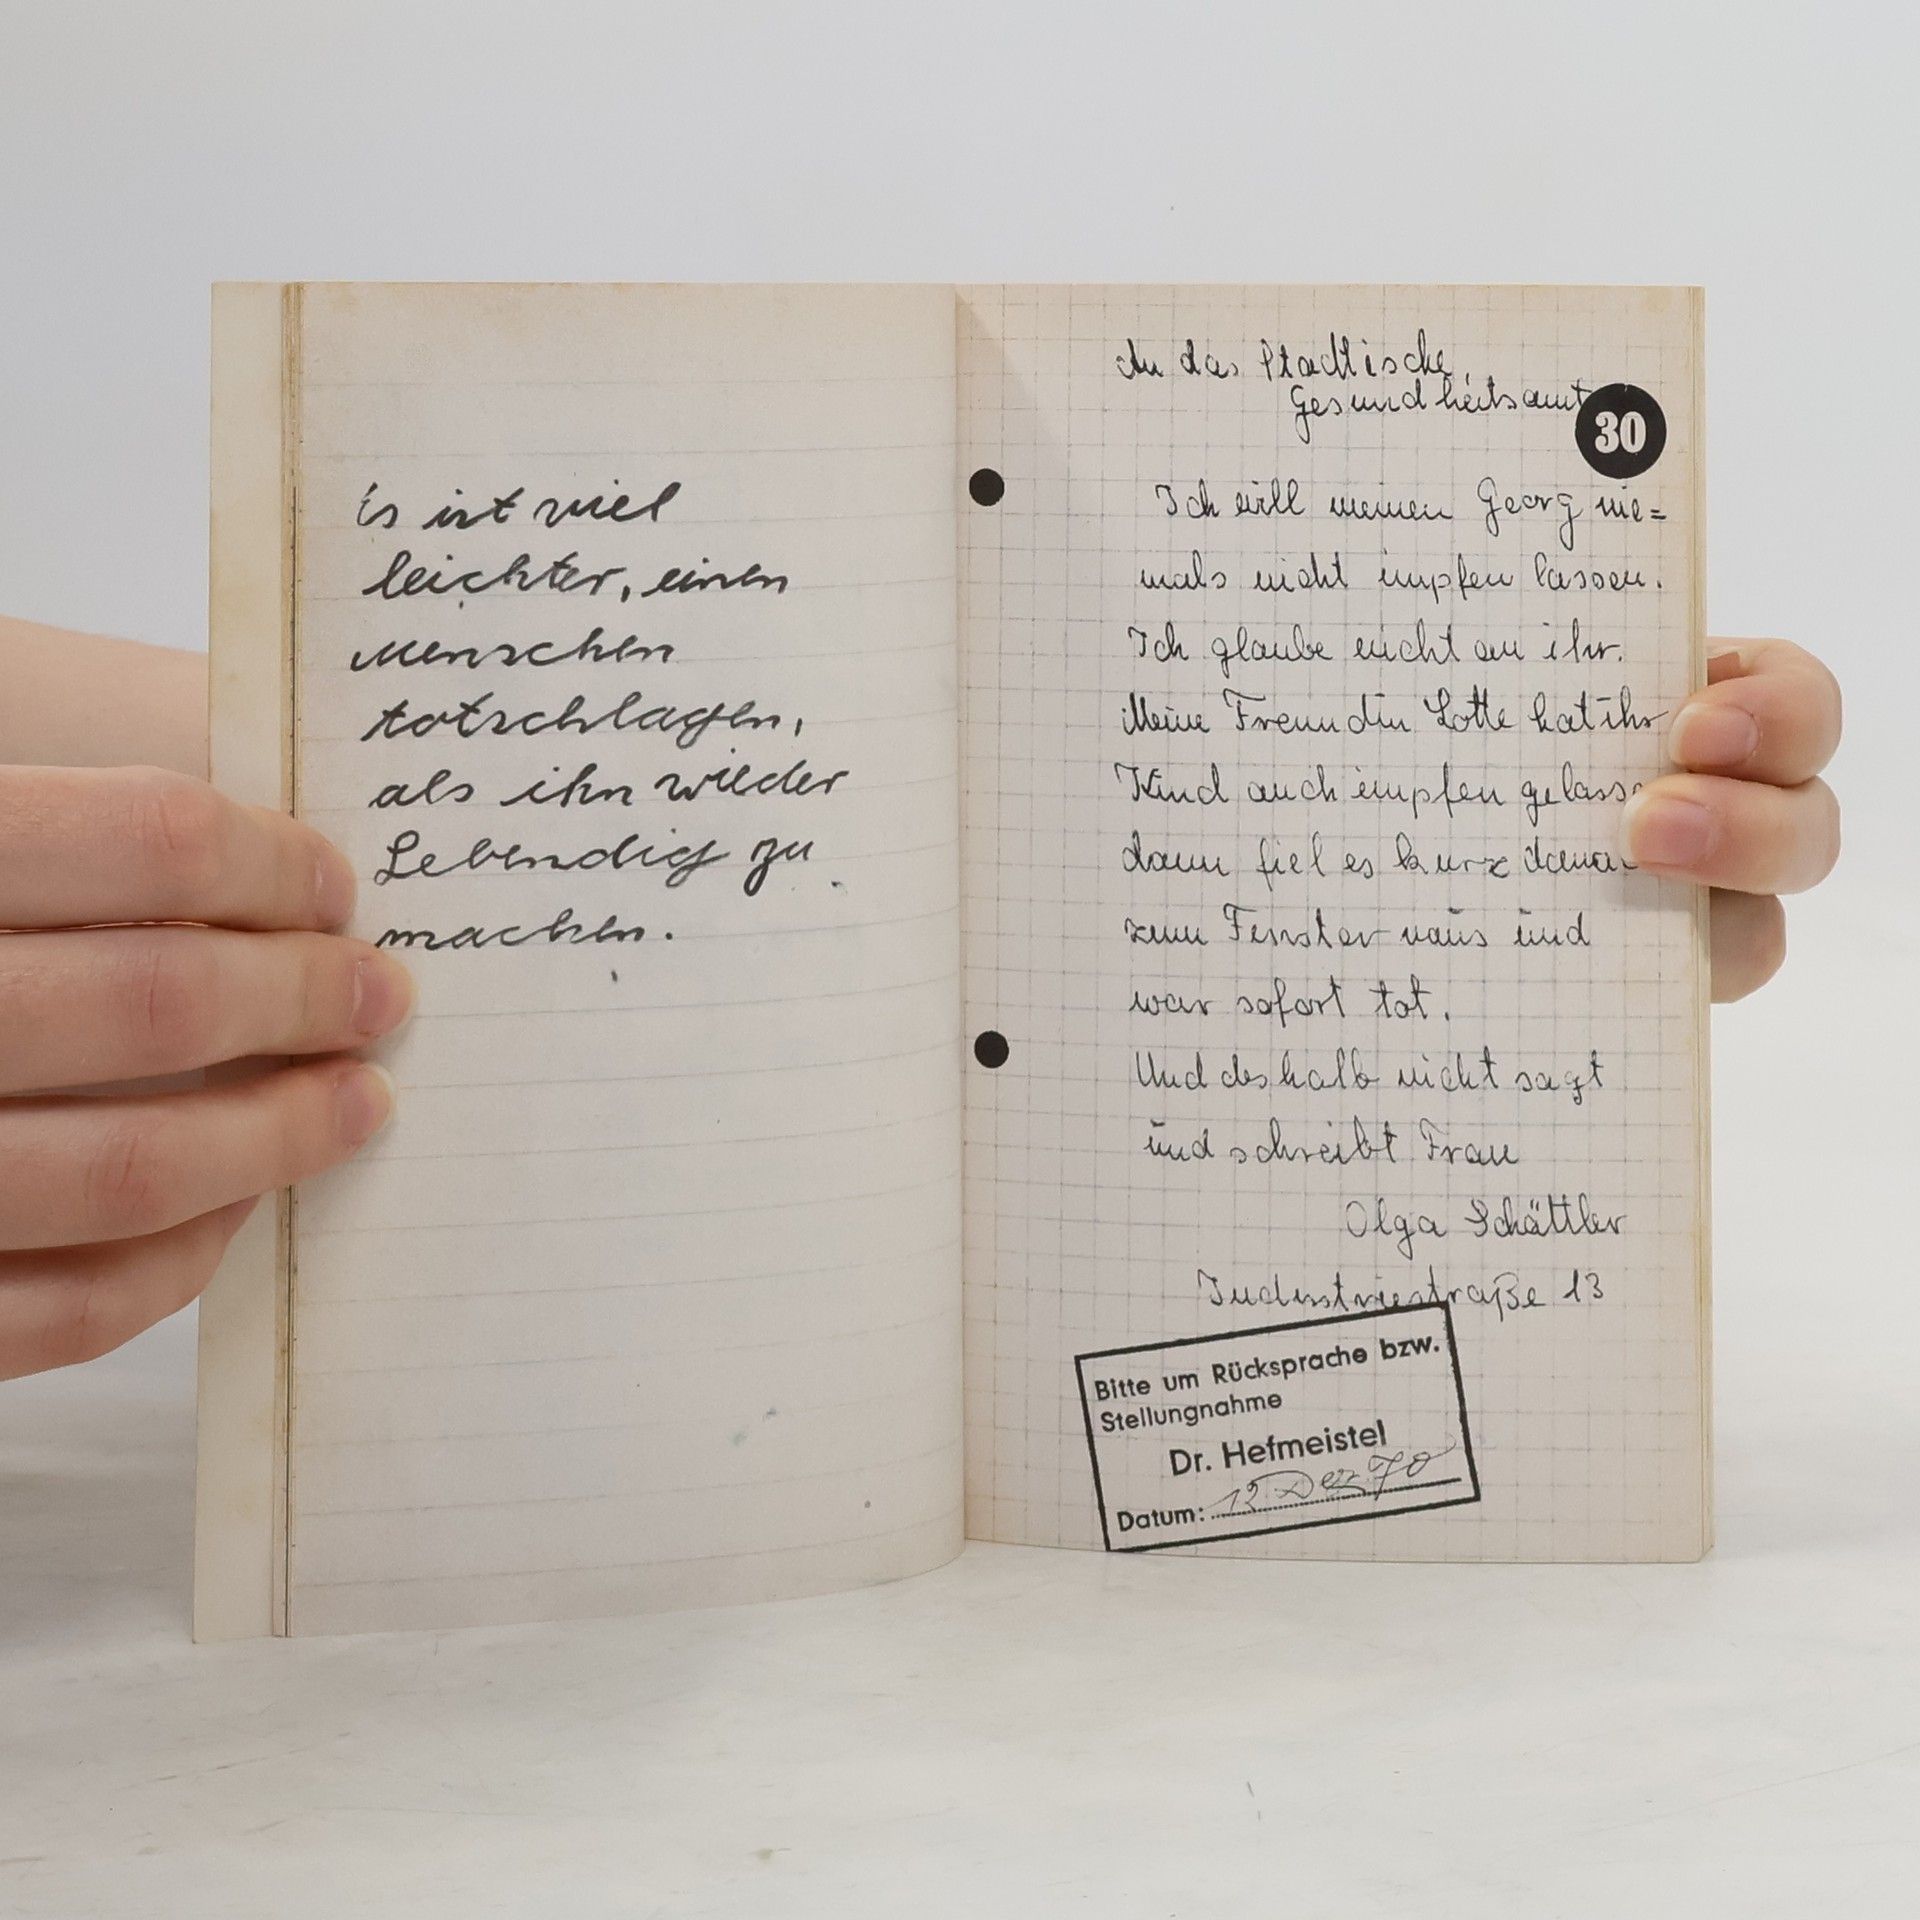 Es ist viel
leichter, einen
Menschen
totschlagen,
als ihn wieder
Lebendig zu
machen.
An das Städtische
Gesundheitsamt
30
Ich will meinen Georg nie=
mals nicht impfen lassen.
Ich glaube nicht an ihr.
Meine Freundin Lotte hat ihr
Kind auch impfen gelasse
dann fiel es kurz
zum Fenster naus und
war sofort tot.
Und deshalb nicht sagt
und schreibt Frau
Olga Schättler
Industriestraße 13
Bitte um Rücksprache bzw.
Stellungnahme
Dr. Hefmeistel
Datum: 12. Dez. 70